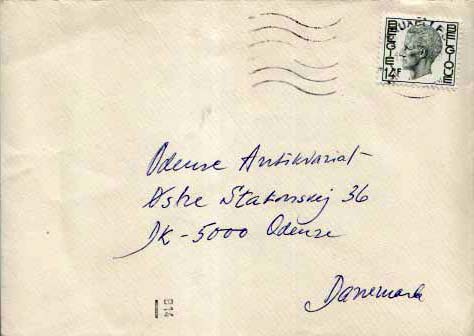 BELGIE BELGIQUE
14F
Odense Antikvariat
Østre Stationsvej 36
DK-5000 Odense
Danemark
B14